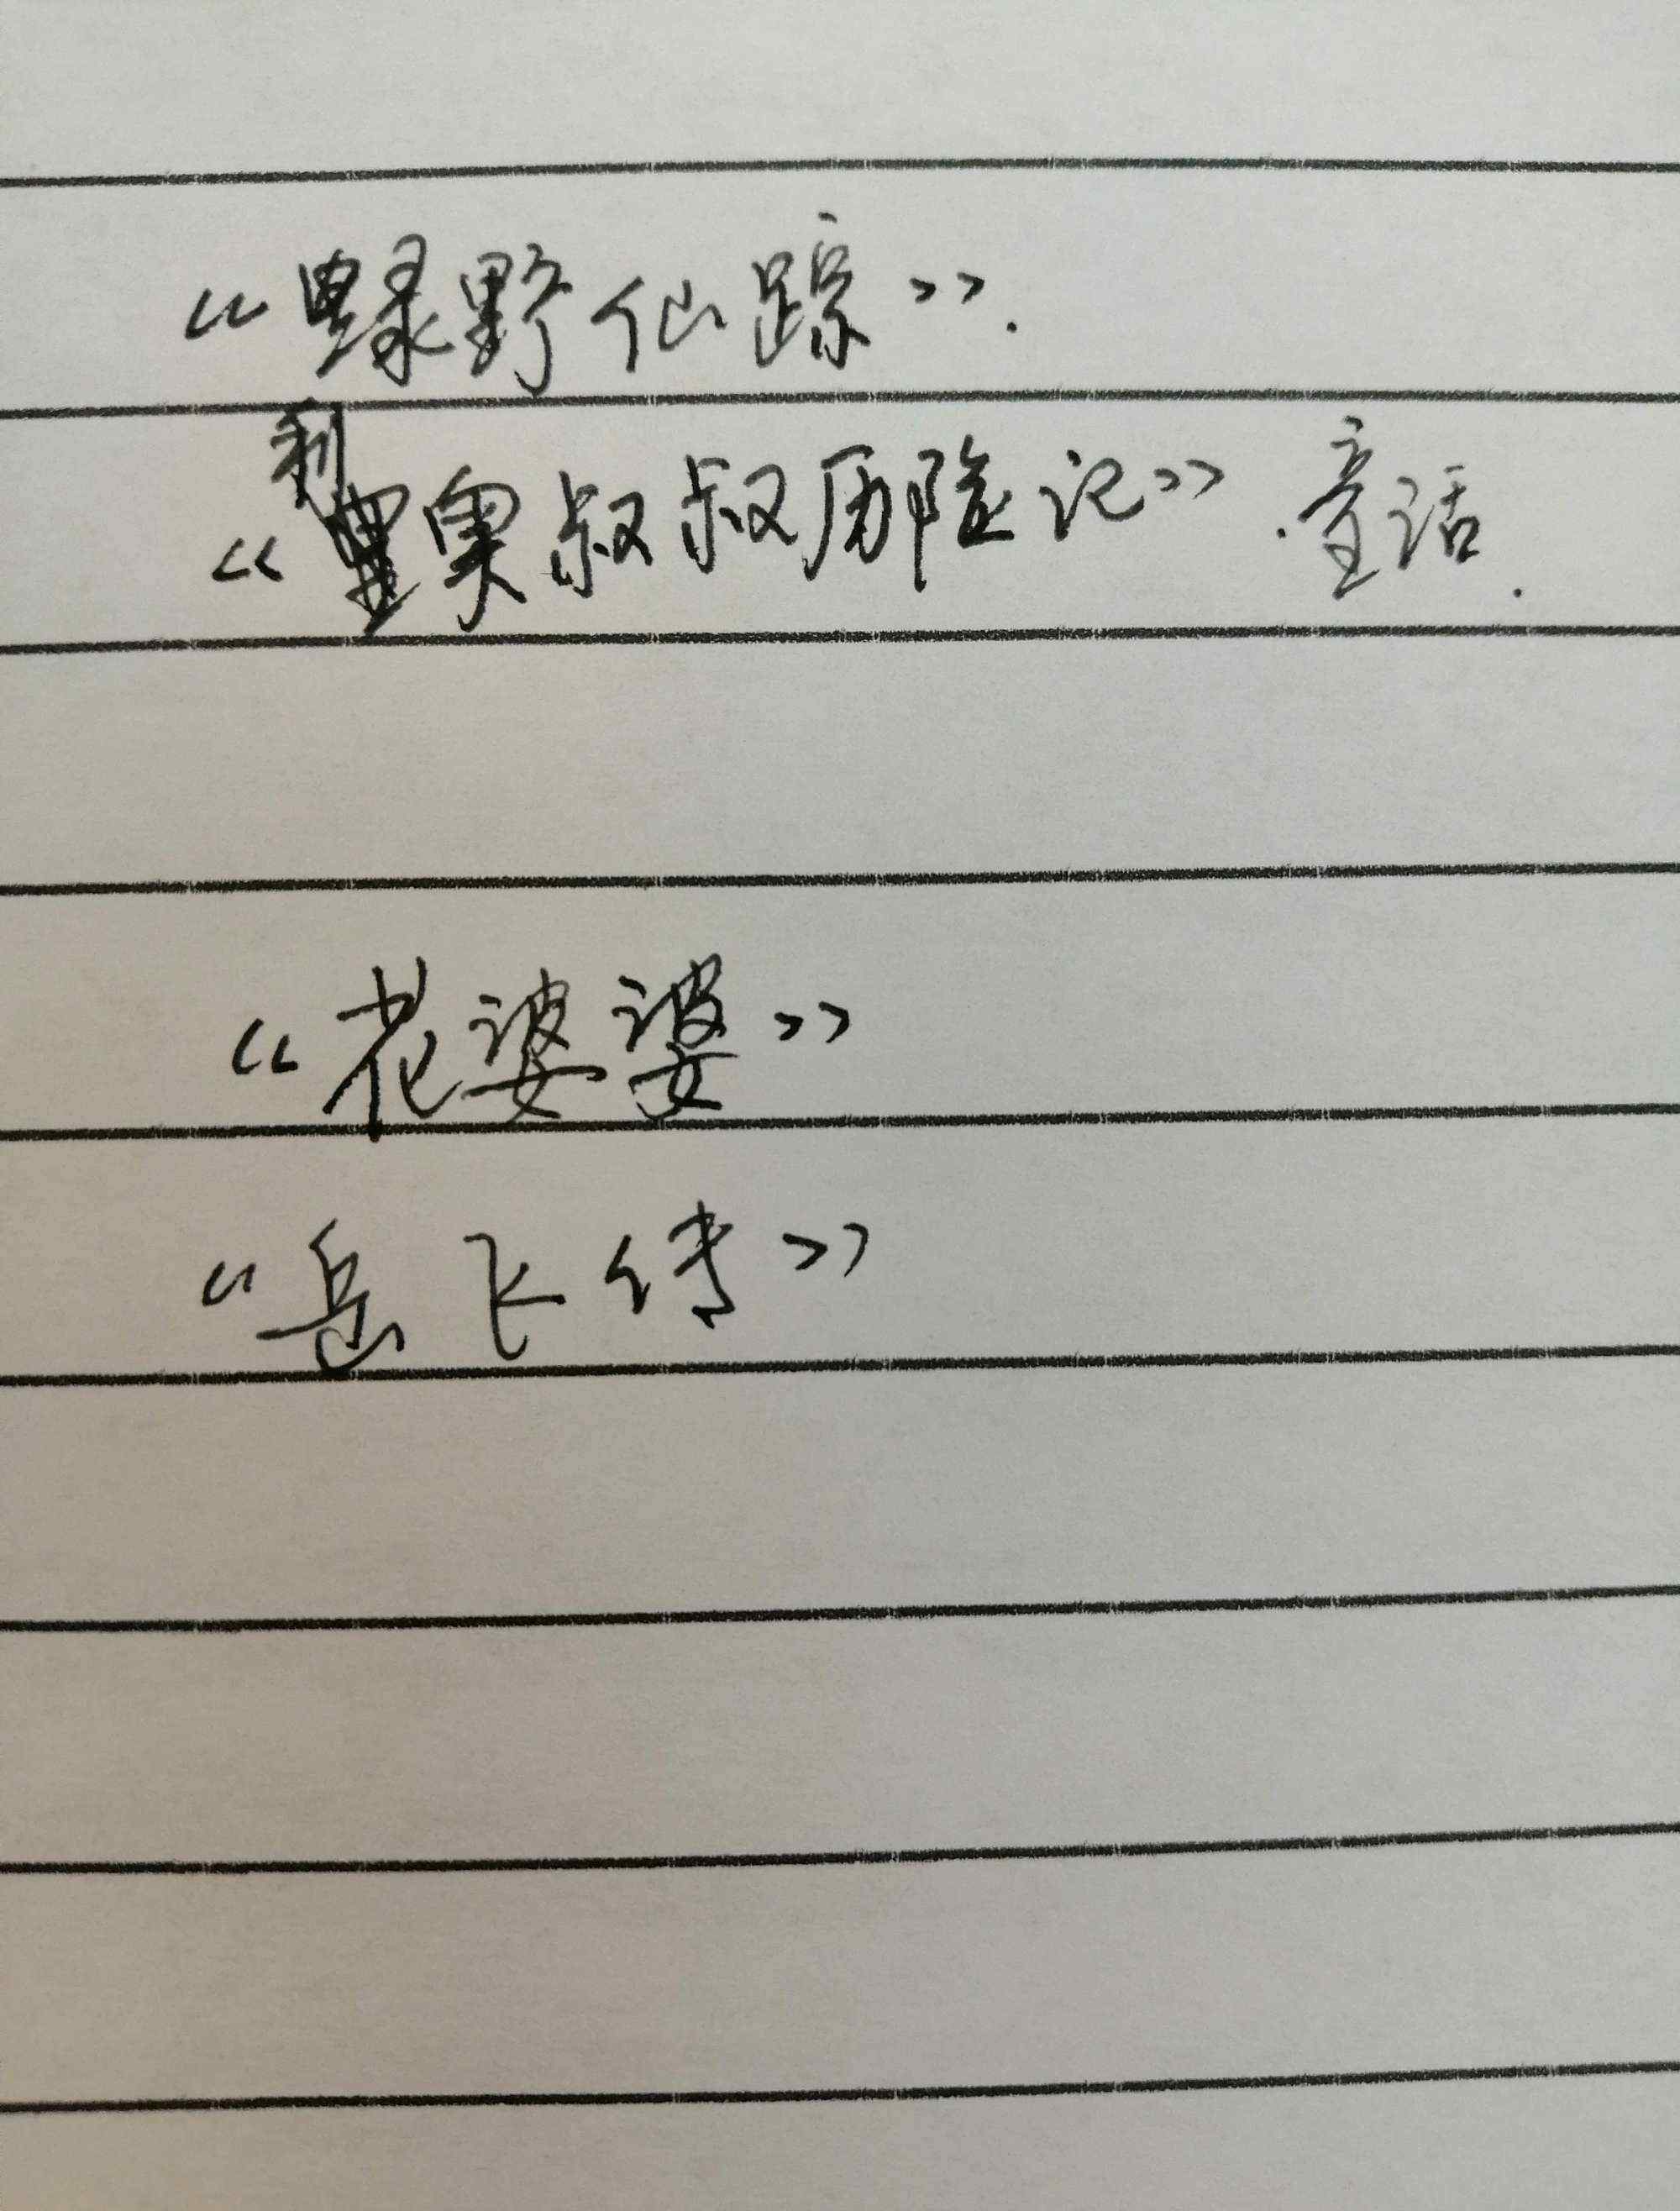 《绿野仙踪》.
《利奥叔叔历险记》.童话.
《花婆婆》
《岳飞传》